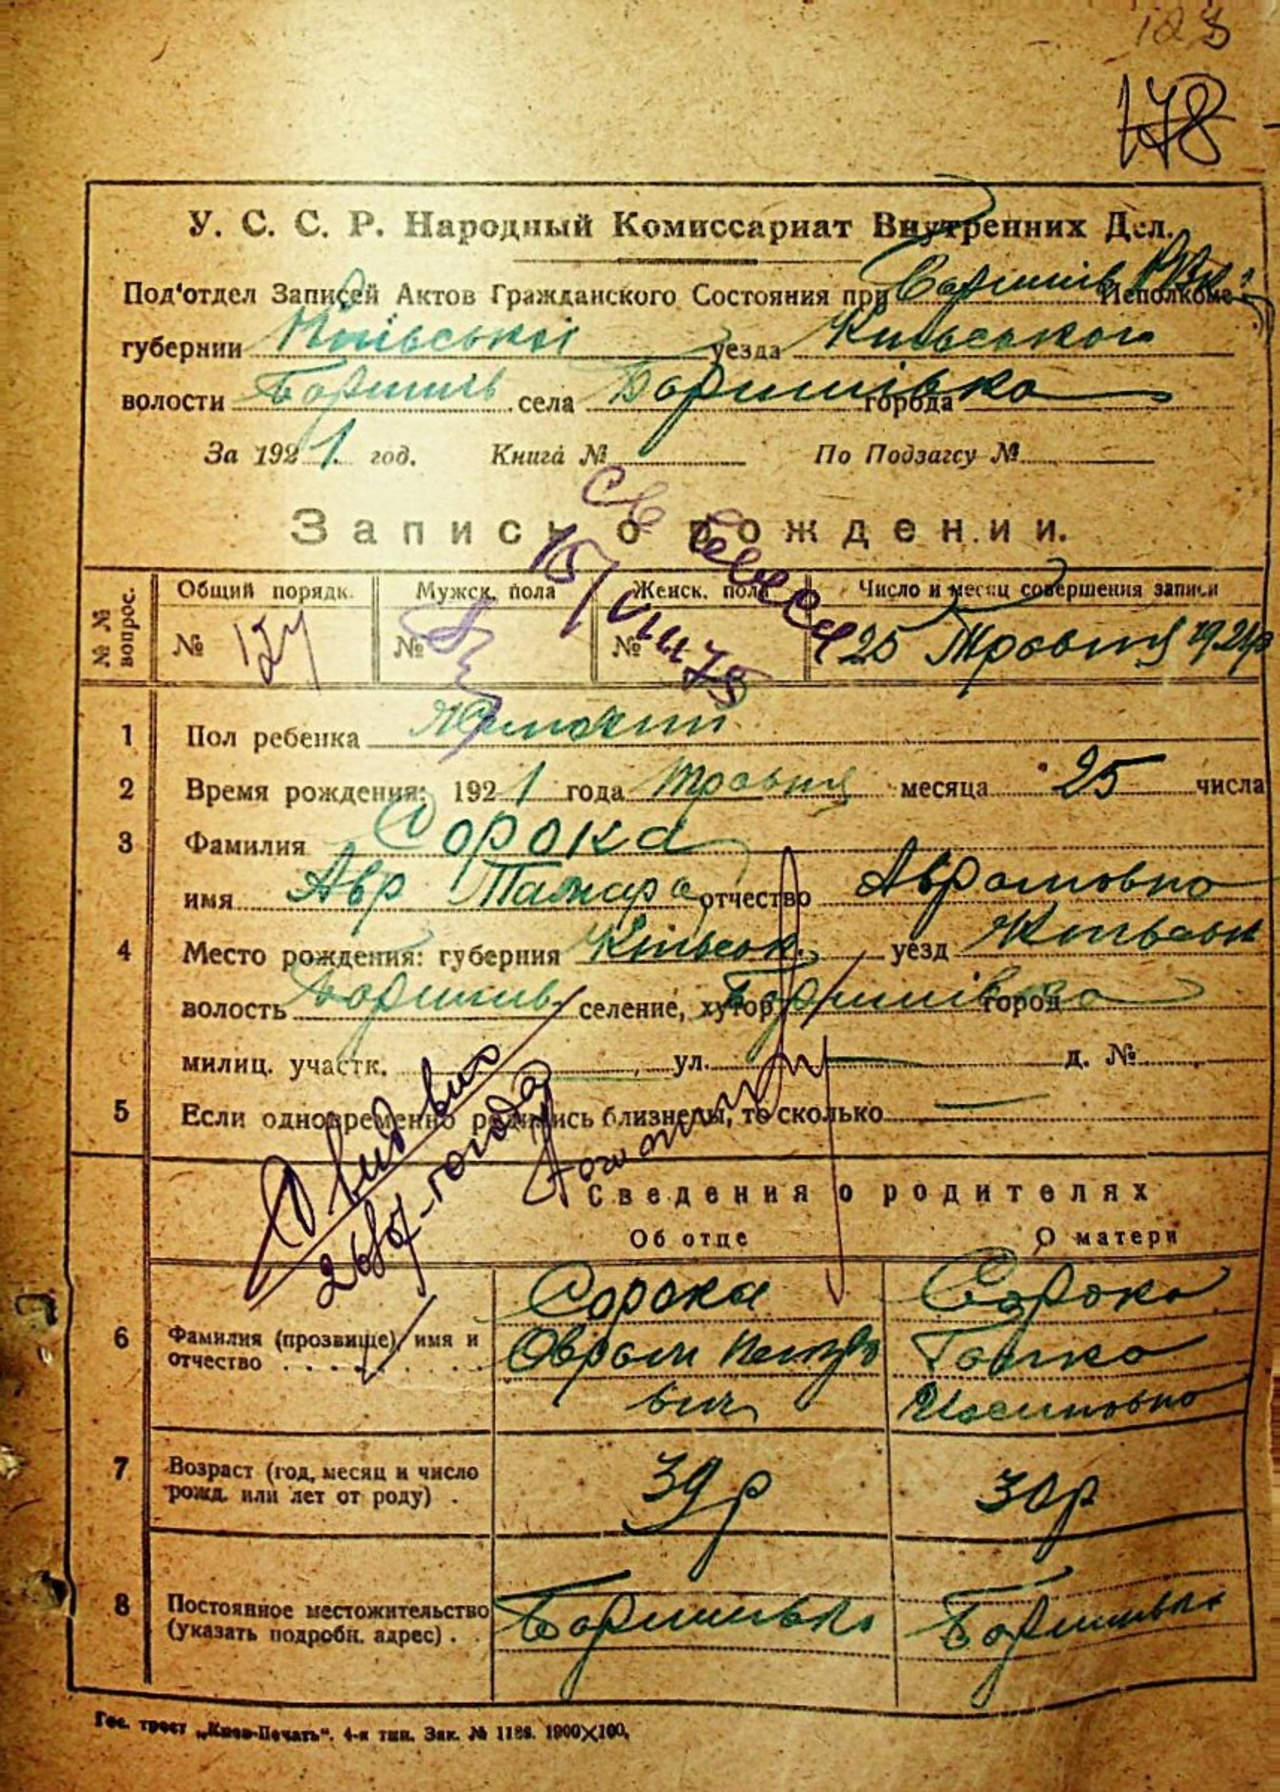 128
178
У. С. С. Р. Народный Комиссариат Внутренних Дел.
Под'отдел Записей Актов Гражданского Состояния при Баришів РВК Исполкоме
губернии Київської уезда Київського
волости Баришів села Баришівка города
За 1921 год. Книга № По Подзагсу №
Запись о рождении.
№ № вопрос. Общий порядк. Мужск. пола Женск. пола Число и месяц совершения записи
№ № № 25 Травня 1921р
1 Пол ребенка Жіночий
2 Время рождения: 1921 года Травня месяца 25 числа
3 Фамилия Сорока
имя Авр Тамара отчество Аврамовна
4 Место рождения: губерния Київськ. уезд
волость Баришів селение, хутор Баришівка город
милиц. участк. ул. д. №
5 Если одновременно родились близнецы, то сколько
Сведения о родителях
Об отце О матери
6 Фамилия (прозвище), имя и отчество Сорока Сорока
Оврам
вич
7 Возраст (год, месяц и число рожд. или лет от роду) 39 р 30 р
8 Постоянное местожительство (указать подробн. адрес) Баришівка Баришівка
Гос. трест „Киев-Печать". 4-я тип. Зак. № 1188. 1900×100.